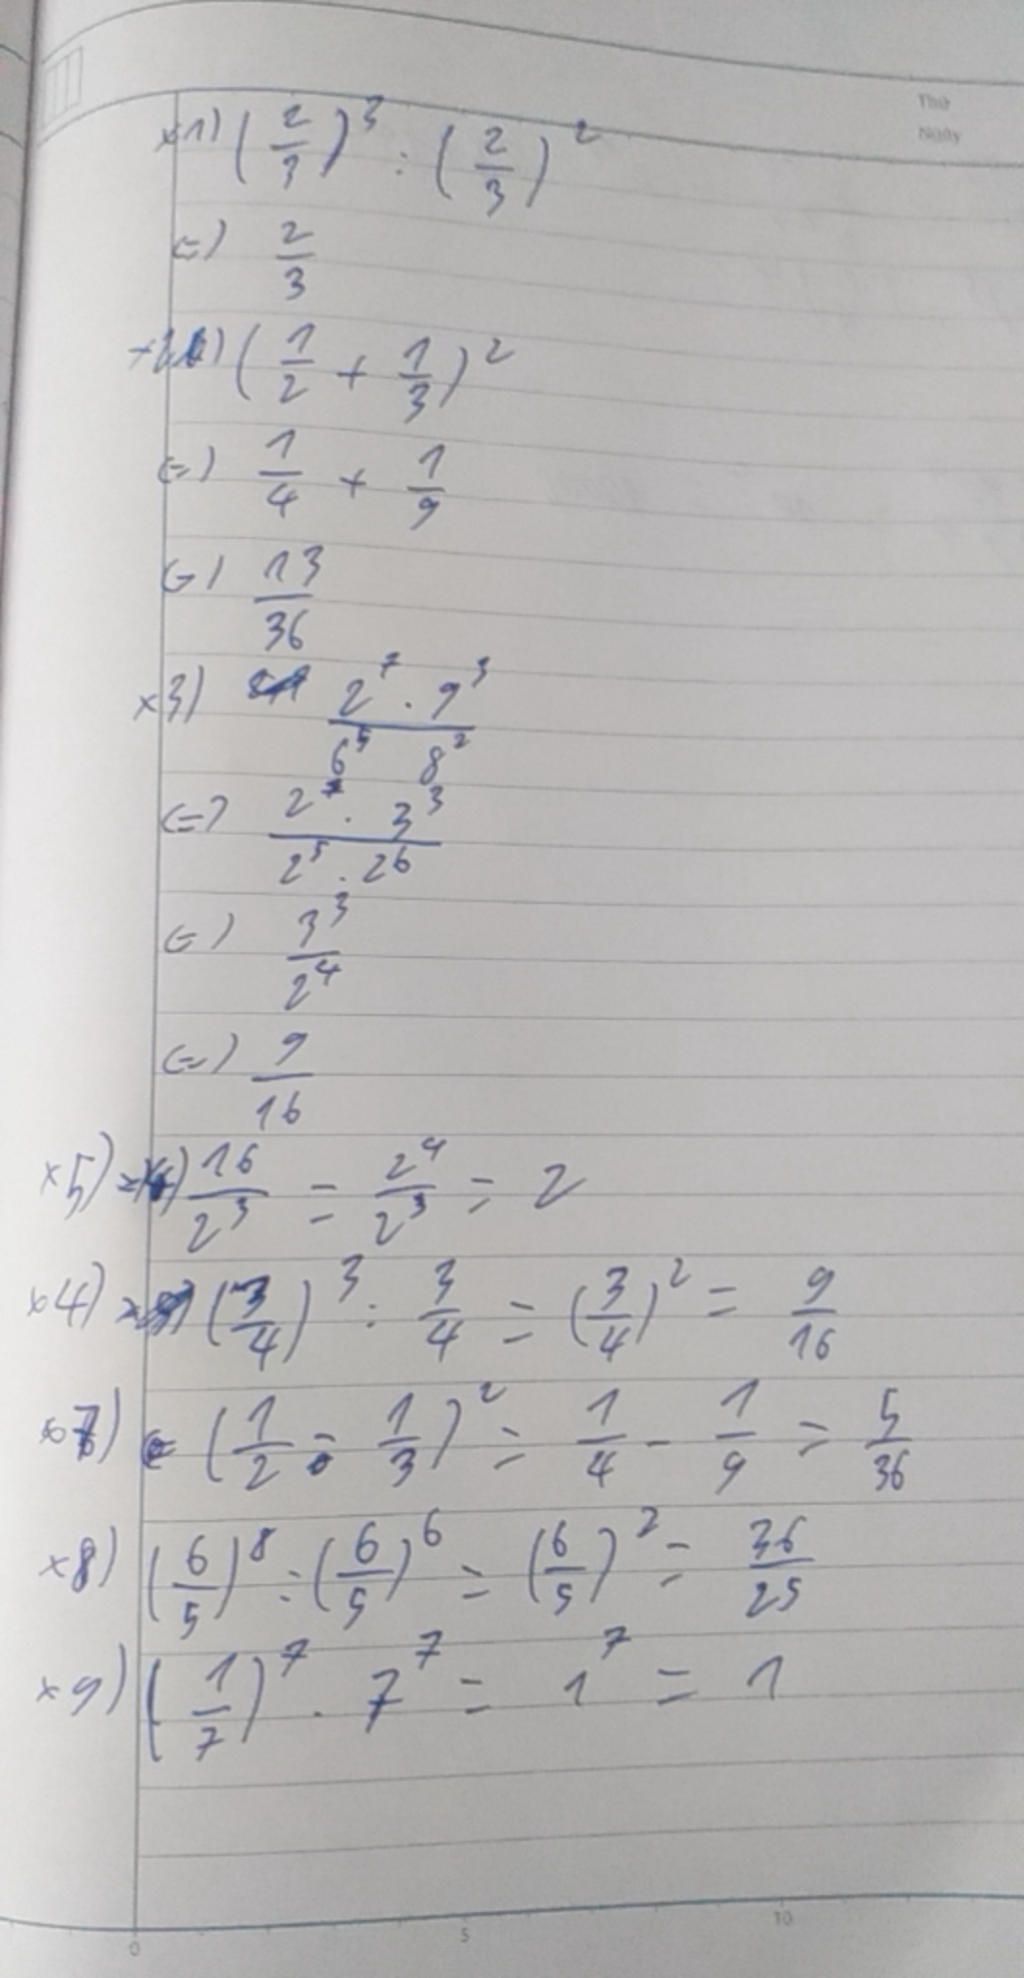 Thứ
Ngày
x1) (2/3)^3 : (2/3)^2
(=) 2/3
x2) (1/2 + 1/3)^2
(=) 1/4 + 1/9
(=) 13/36
x3) (2^7 . 9^3)/(6^5 8^2)
(=) (2^7 . 3^3)/(2^5 . 2^6)
(=) 3^3/2^4
(=) 9/16
x5) 16/2^3 = 2^4/2^3 = 2
x4) (3/4)^3 : 3/4 = (3/4)^2 = 9/16
x7) (1/2 - 1/3)^2 = 1/4 - 1/9 = 5/36
x8) (6/5)^8 : (6/5)^6 = (6/5)^2 = 36/25
x9) (1/7)^7 . 7^7 = 1^7 = 1
0 5 10